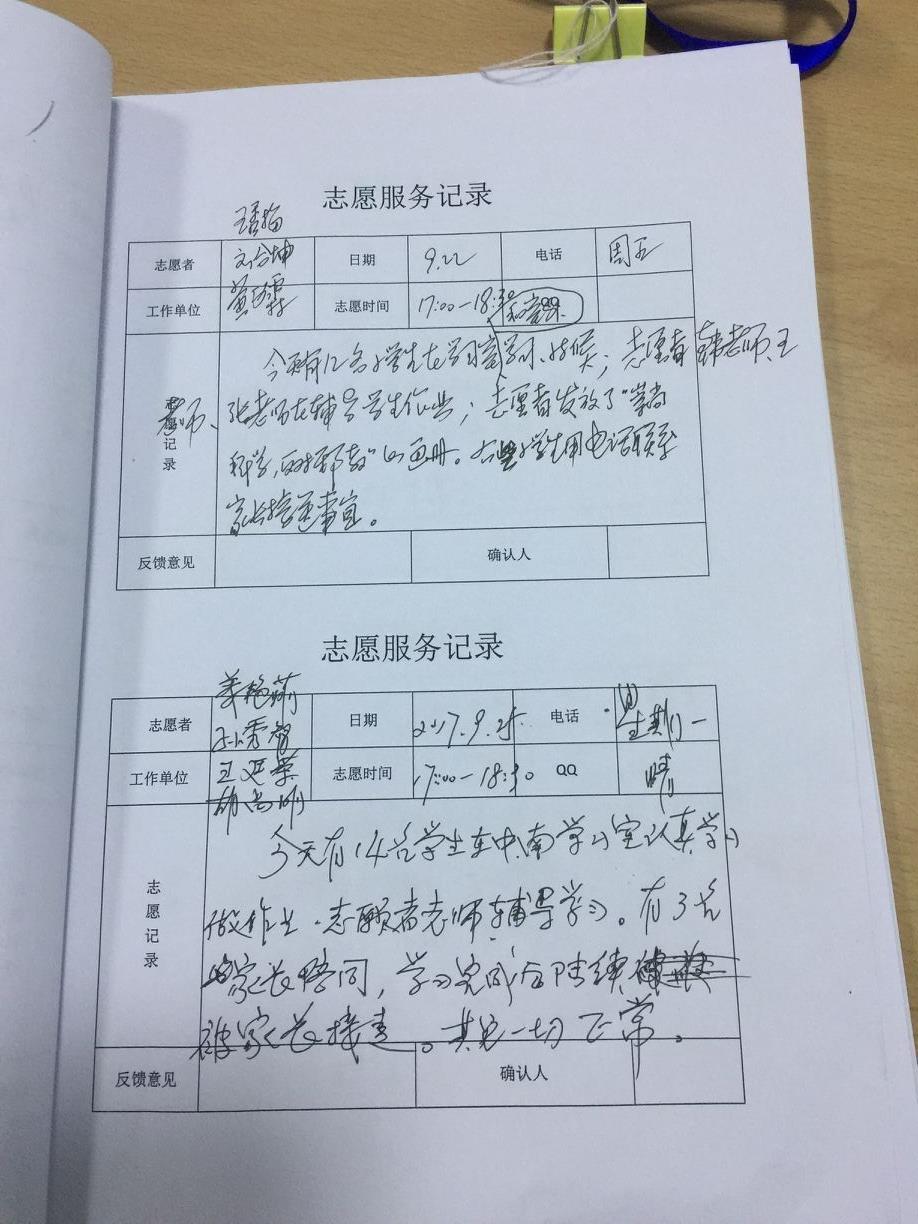 志愿服务记录
志愿者 日期 9.22 电话 周五
工作单位 志愿时间 17:00-18:30 QQ
志愿记录
今天有12名小学生在学习室学习、 志愿者韩老师、王
老师、张老师在辅导学生作业；志愿者发放了"崇尚
科学，反对邪教"的画册。有些小学生用电话联系
家长接送事宜。
反馈意见 确认人
志愿服务记录
志愿者 日期 2017.9.25. 电话 星期一
工作单位 志愿时间 17:00-18:30 QQ 晴
志愿记录
今天有14名学生在中南学习室认真学习
做作业.志愿者老师辅导学习。有3名
家长陪同，学习完成后陆续
被家长接走。其它一切正常。
反馈意见 确认人